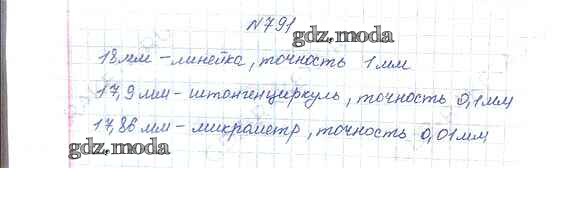 №791
gdz.moda
18мм – линейка, точность 1мм
17,9мм – штангенциркуль, точность 0,1мм
17,86мм – микрометр, точность 0,01мм
gdz.moda